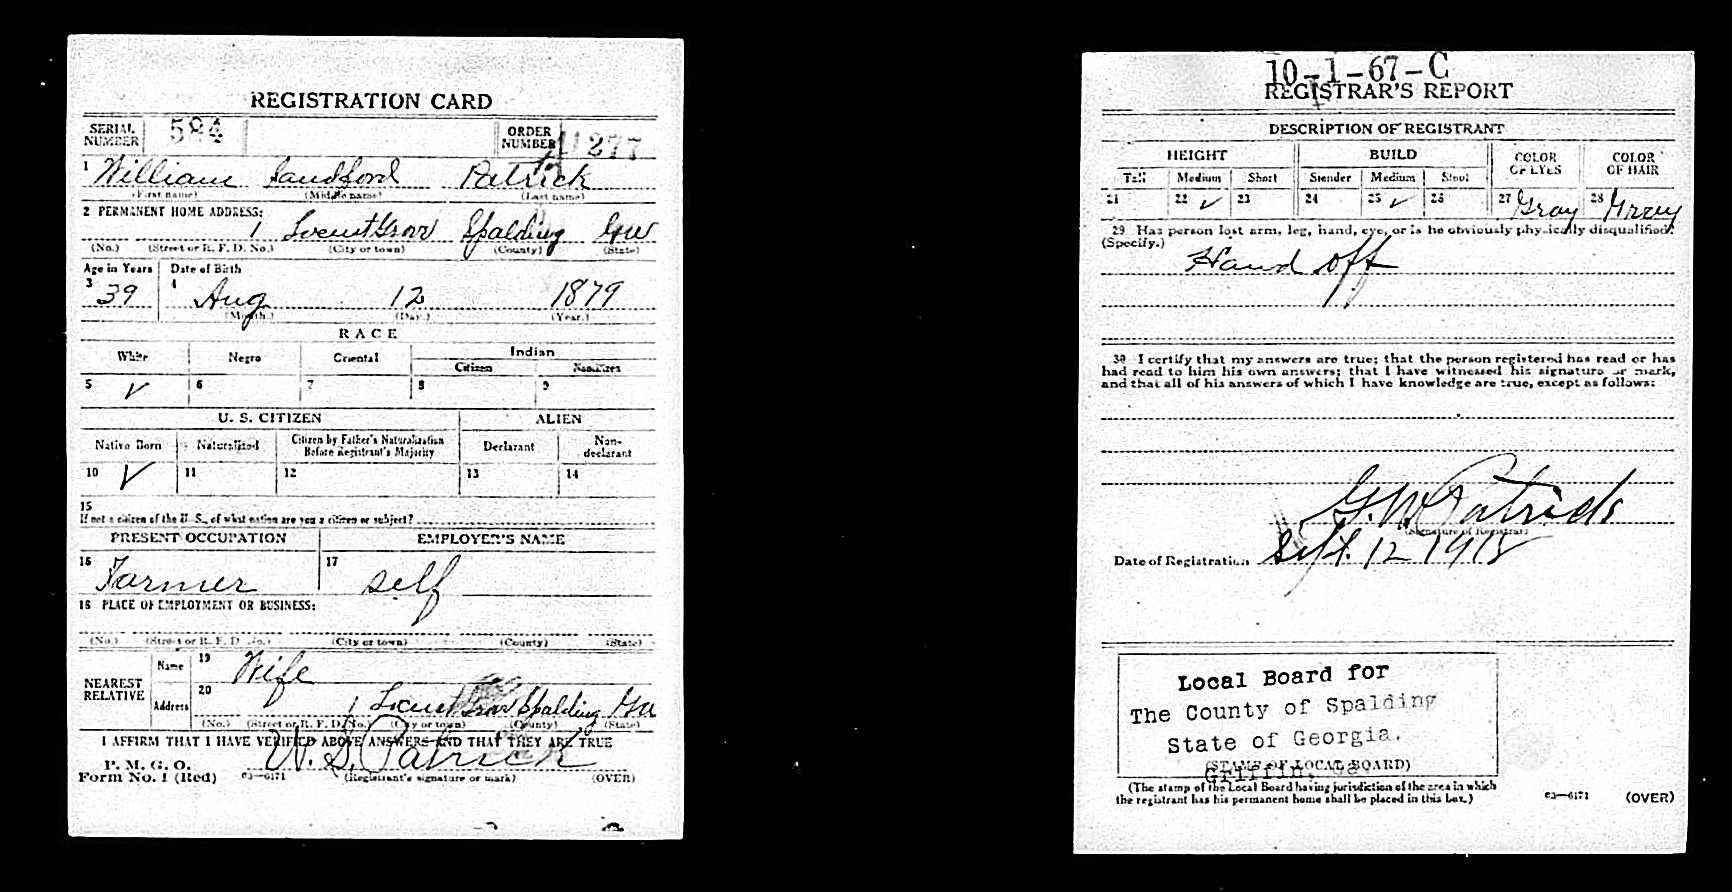 REGISTRATION CARD
SERIAL NUMBER 584 ORDER NUMBER 277
1 William Sandford Patrick
(First name) (Middle name) (Last name)
2 PERMANENT HOME ADDRESS:
1 Locust Grove Spalding Ga
(No.) (Street or R. F. D. No.) (City or town) (County) (State)
Age in Years Date of Birth
3 39 4 Aug 12 1879
(Month.) (Day.) (Year.)
RACE
White Negro Oriental Indian
Citizen Noncitizen
5 ✓ 6 7 8 9
U. S. CITIZEN ALIEN
Native Born Naturalized Citizen by Father's Naturalization Before Registrant's Majority Declarant Non-declarant
10 ✓ 11 12 13 14
15
If not a citizen of the U. S., of what nation are you a citizen or subject?
PRESENT OCCUPATION EMPLOYER'S NAME
16 Farmer 17 self
18 PLACE OF EMPLOYMENT OR BUSINESS:
(No.) (Street or R. F. D. No.) (City or town) (County) (State)
NEAREST RELATIVE Name 19 Wife
Address 20 1 Locust Grove Spalding Ga
(No.) (Street or R. F. D. No.) (City or town) (County) (State)
I AFFIRM THAT I HAVE VERIFIED ABOVE ANSWERS AND THAT THEY ARE TRUE
P. M. G. O.
Form No. 1 (Red) 03—6171 W. S. Patrick
(Registrant's signature or mark) (OVER)
10-1-67-C
REGISTRAR'S REPORT
DESCRIPTION OF REGISTRANT
HEIGHT BUILD COLOR OF EYES COLOR OF HAIR
Tall Medium Short Slender Medium Stout
21 22 ✓ 23 24 25 ✓ 26 27 Gray 28 Gray
29 Has person lost arm, leg, hand, eye, or is he obviously physically disqualified?
(Specify.)
Hand off
30 I certify that my answers are true; that the person registered has read or has
had read to him his own answers; that I have witnessed his signature or mark,
and that all of his answers of which I have knowledge are true, except as follows:
G. W. Patrick
(Signature of Registrar)
Date of Registration Sept. 12 1918
Local Board for
The County of Spalding
State of Georgia.
(STAMP OF LOCAL BOARD)
Griffin, Ga.
(The stamp of the Local Board having jurisdiction of the area in which
the registrant has his permanent home shall be placed in this box.)
03—6171 (OVER)